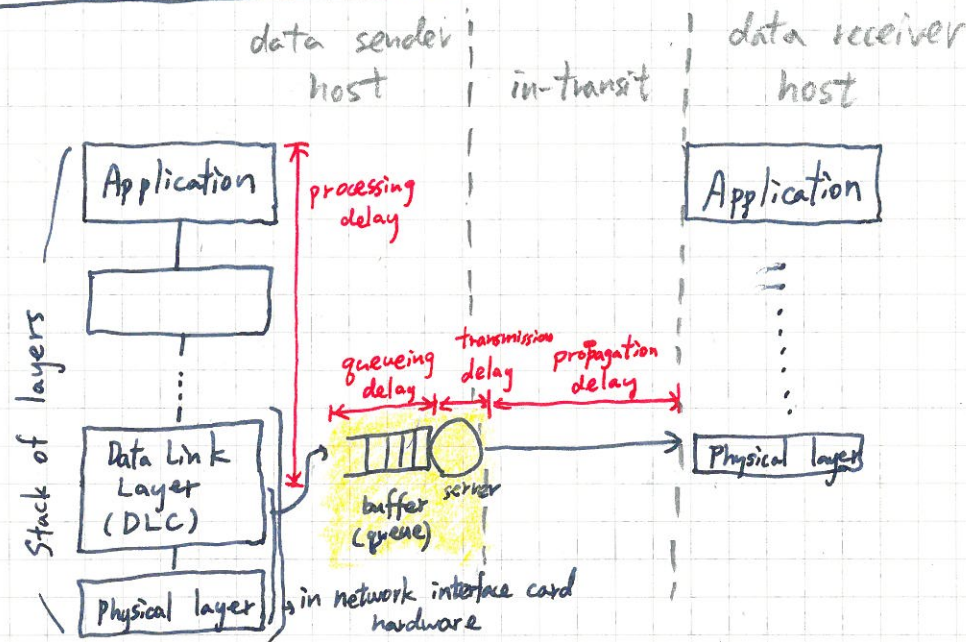 data sender
host
in-transit
data receiver
host
Stack of layers
Application
processing
delay
Application
queueing
delay
transmission
delay
propagation
delay
Data Link
Layer
(DLC)
buffer
(queue)
server
Physical layer
Physical layer
in network interface card
hardware